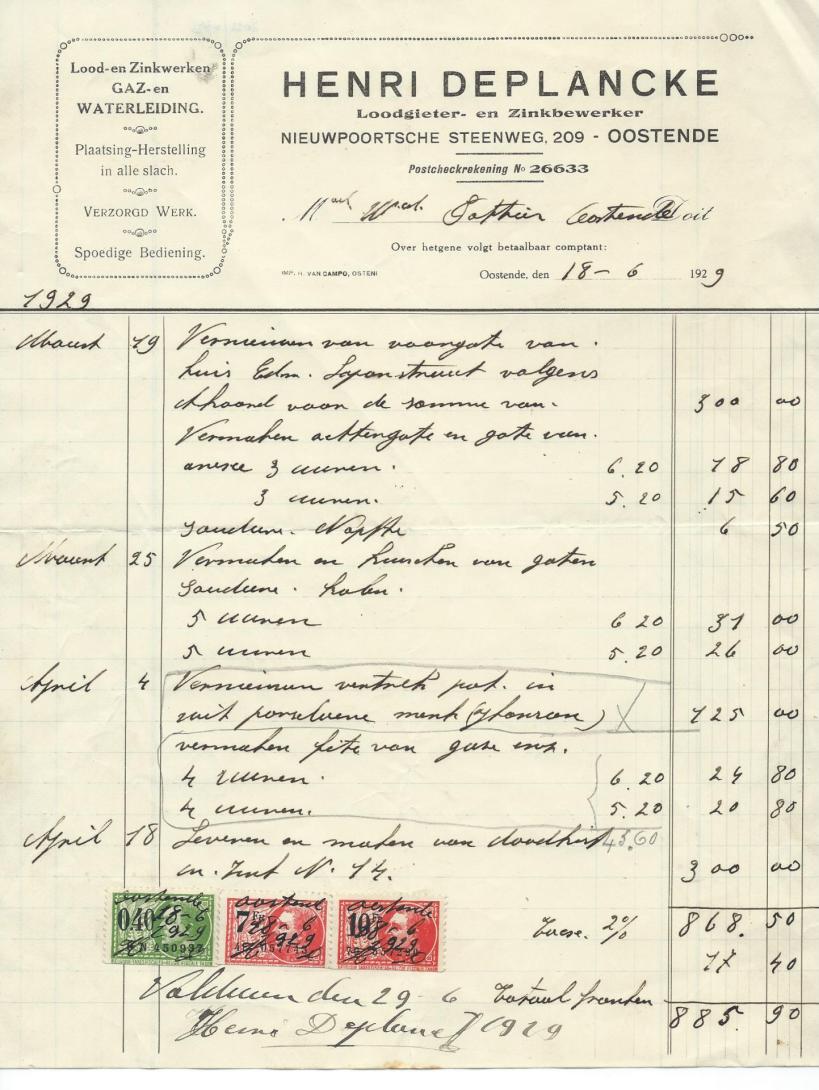 Lood-en Zinkwerken
GAZ-en
WATERLEIDING.
Plaatsing-Herstelling
in alle slach.
VERZORGD WERK.
Spoedige Bediening.
HENRI DEPLANCKE
Loodgieter- en Zinkbewerker
NIEUWPOORTSCHE STEENWEG, 209 - OOSTENDE
Postcheckrekening No 26633
Oostende Doit
Over hetgene volgt betaalbaar comptant:
IMP. H. VAN CAMPO, OSTENI
Oostende, den 18-6 1929
1929
Maart 19 Vernieuwen van voorgote van
huis Edm. straat volgens
Akkoord voor de somme van 300 00
Vermaken achtergote en gote van
3 uuren. 6.20 18 80
3 uuren. 5.20 15 60
Soudure. Naphte 6 50
Maart 25 Vermaken en kuischen van goten
Soudure. kolen.
5 uuren 6 20 31 00
5 uuren 5.20 26 00
April 4 Vernieuwen vertrek pot in
wit porseleine merk 125 00
vermaken van gaze enz.
4 uuren. 6.20 24 80
4 uuren. 5.20 20 80
43.60
April 18 Leveren en maken van doodkist
in Zink N. 14. 300 00
Taxe. 2% 868. 50
17 40
Totaal franken 885. 90
040 7 Fr 10
oostende oostend oostende
18-6 18-6 18-6
1929 1929 1929
Voldaan den 29-6
Henri Deplancke 1929